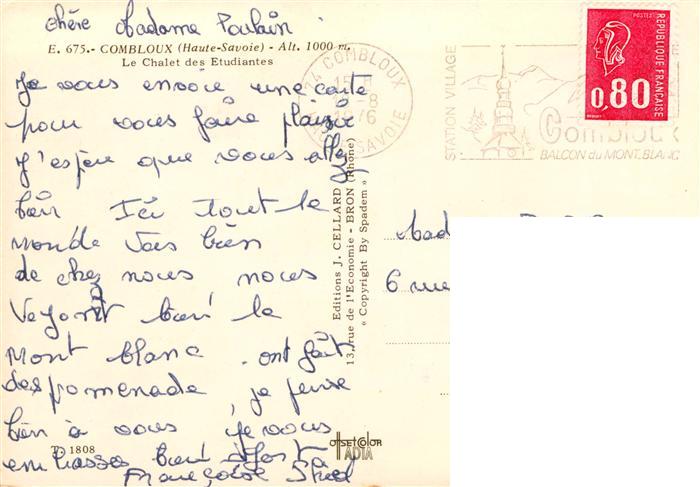 chère Madame Poulain
E. 675.- COMBLOUX (Haute-Savoie) - Alt. 1000 m.
Le Chalet des Etudiantes
Je vous envoie une carte
pour vous faire plaisir
J'espère que vous allez
bien Ici tout le
monde vas bien
de chez nous nous
Voyont bien le
mont blanc. ont fait
des promenade, je pense
bien à vous je vous
embrasses bien fort
Françoise
T. 1808
Editions J. CELLARD
13, rue de l'Economie - BRON (Rhône)
« Copyright By Spadem »
OFFSETCOLOR
ADIA
74 COMBLOUX
15 H
-8
1976
HAUTE SAVOIE
STATION VILLAGE
Combloux
BALCON du MONT.BLANC
POSTES
REPUBLIQUE FRANÇAISE
0,80
Mad
6 rue